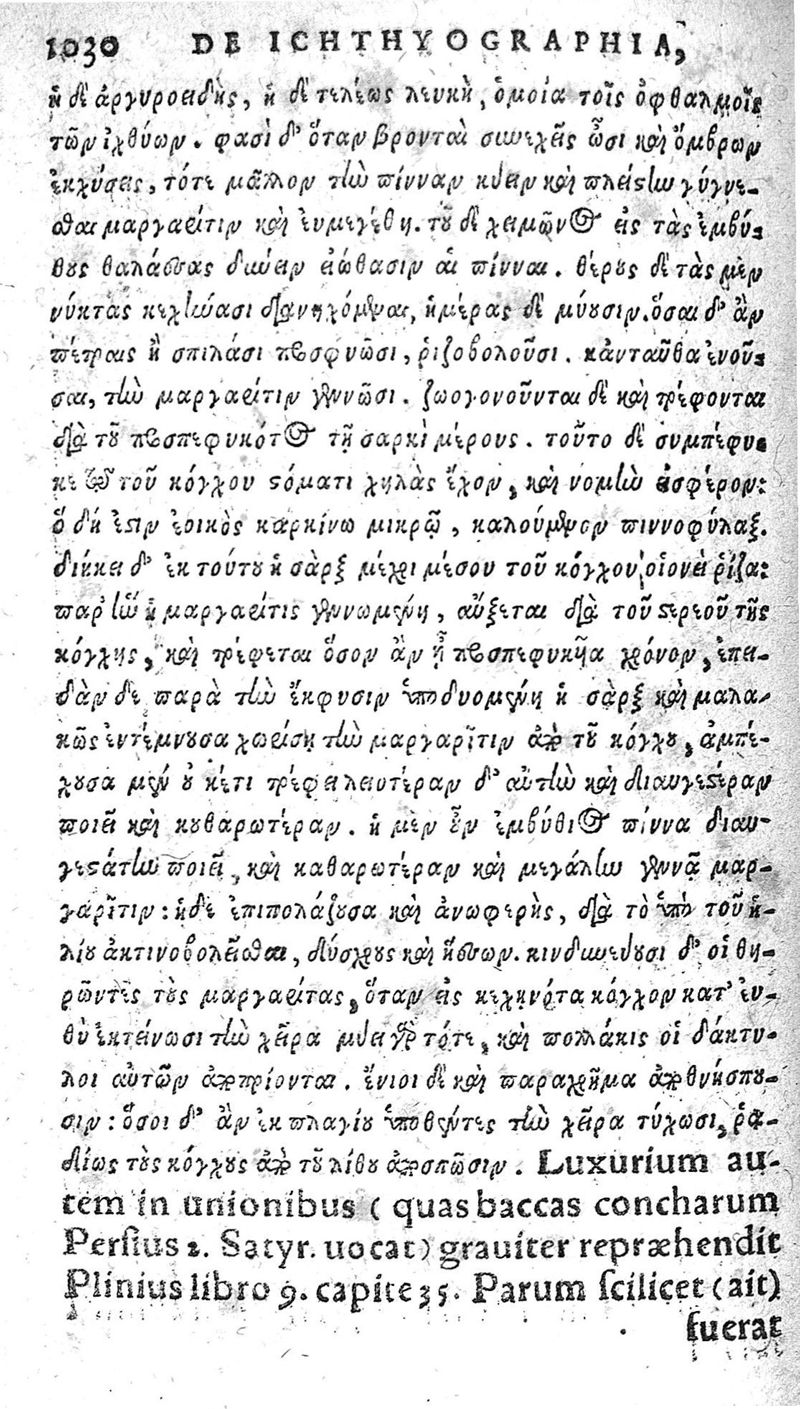 1030 DE ICHTHYOGRAPHIA,
ἡ δὲ ἀργυροειδὴς, ἡ δὲ τελέως λευκὴ, ὁμοία τοῖς ὀφθαλμοῖς
τῶν ἰχθύων. φασὶ δ' ὅταν βρονταὶ συνεχεῖς ὦσι καὶ ὄμβρων
ἐκχύσεις, τότε μᾶλλον τὴν πίνναν κύειν καὶ πλείστην γίγνε-
σθαι μαργαρῖτιν καὶ εὐμεγέθη. τοῦ δὲ χειμῶνος εἰς τὰς ἐμβύ-
θους θαλάσσας δύνειν εἰώθασιν αἱ πίνναι. θέρους δὲ τὰς μὲν
νύκτας κεχήνασι διανηχόμεναι, ἡμέρας δὲ μύουσιν. ὅσαι δ' ἂν
πέτραις ἢ σπιλάσι προσφυῶσι, ῥιζοβολοῦσι. κἀνταῦθα μένου-
σαι, τὴν μαργαρῖτιν γεννῶσι. ζωογονοῦνται δὲ καὶ τρέφονται
διὰ τοῦ προσπεφυκότος τῇ σαρκὶ μέρους. τοῦτο δὲ συμπέφυ-
κε τῷ τοῦ κόγχου στόματι χηλὰς ἔχον, καὶ νομὴν εἰσφέρον:
ὃ δή ἐστιν ἐοικὸς καρκίνῳ μικρῷ, καλούμενον πιννοφύλαξ.
διήκει δ' ἐκ τούτου ἡ σὰρξ μέχρι μέσου τοῦ κόγχου, οἱονεὶ ῥίζα:
παρ' ἣν ἡ μαργαρῖτις γεννωμένη, αὔξεται διὰ τοῦ στερεοῦ τῆς
κόγχης, καὶ τρέφεται ὅσον ἂν ᾖ προσπεφυκῆα χρόνον, ἐπει-
δὰν δὲ παρὰ τὴν ἔκφυσιν ὑποδυομένη ἡ σὰρξ καὶ μαλα-
κῶς ἐντέμνουσα χωρίσῃ τὴν μαργαρῖτιν ἀπὸ τοῦ κόγχου, ἀμπέ-
χουσα μὲν οὐκέτι τρέφει λειοτέραν δ' αὐτὴν καὶ διαυγεστέραν
ποιεῖ καὶ καθαρωτέραν. ἡ μὲν οὖν ἐμβύθιος πίννα διαυ-
γεστάτην ποιεῖ, καὶ καθαρωτέραν καὶ μεγάλην γεννᾷ μαρ-
γαρῖτιν: ἡ δὲ ἐπιπολάζουσα καὶ ἀνωφερὴς, διὰ τὸ ὑπὸ τοῦ ἡ-
λίου ἀκτινοβολεῖσθαι, δύσχρους καὶ ἥσσων. κινδυνεύουσι δ' οἱ θη-
ρῶντες τοὺς μαργαρίτας, ὅταν εἰς κεχηνότα κόγχον κατ' εὐ-
θὺ ἐκτείνωσι τὴν χεῖρα μύει γὰρ τότε, καὶ πολλάκις οἱ δάκτυ-
λοι αὐτῶν ἀποπρίονται. ἔνιοι δὲ καὶ παραχρῆμα ἀποθνήσκου-
σιν: ὅσοι δ' ἂν ἐκ πλαγίου ὑποθέντες τὴν χεῖρα τύχωσι, ῥᾳ-
δίως τοὺς κόγχους ἀπὸ τοῦ λίθου ἀποσπῶσιν. Luxurium au-
tem in unionibus (quas baccas concharum
Persius 2. Satyr. uocat) grauiter repræhendit
Plinius libro 9. capite 35. Parum scilicet (ait)
fuerat